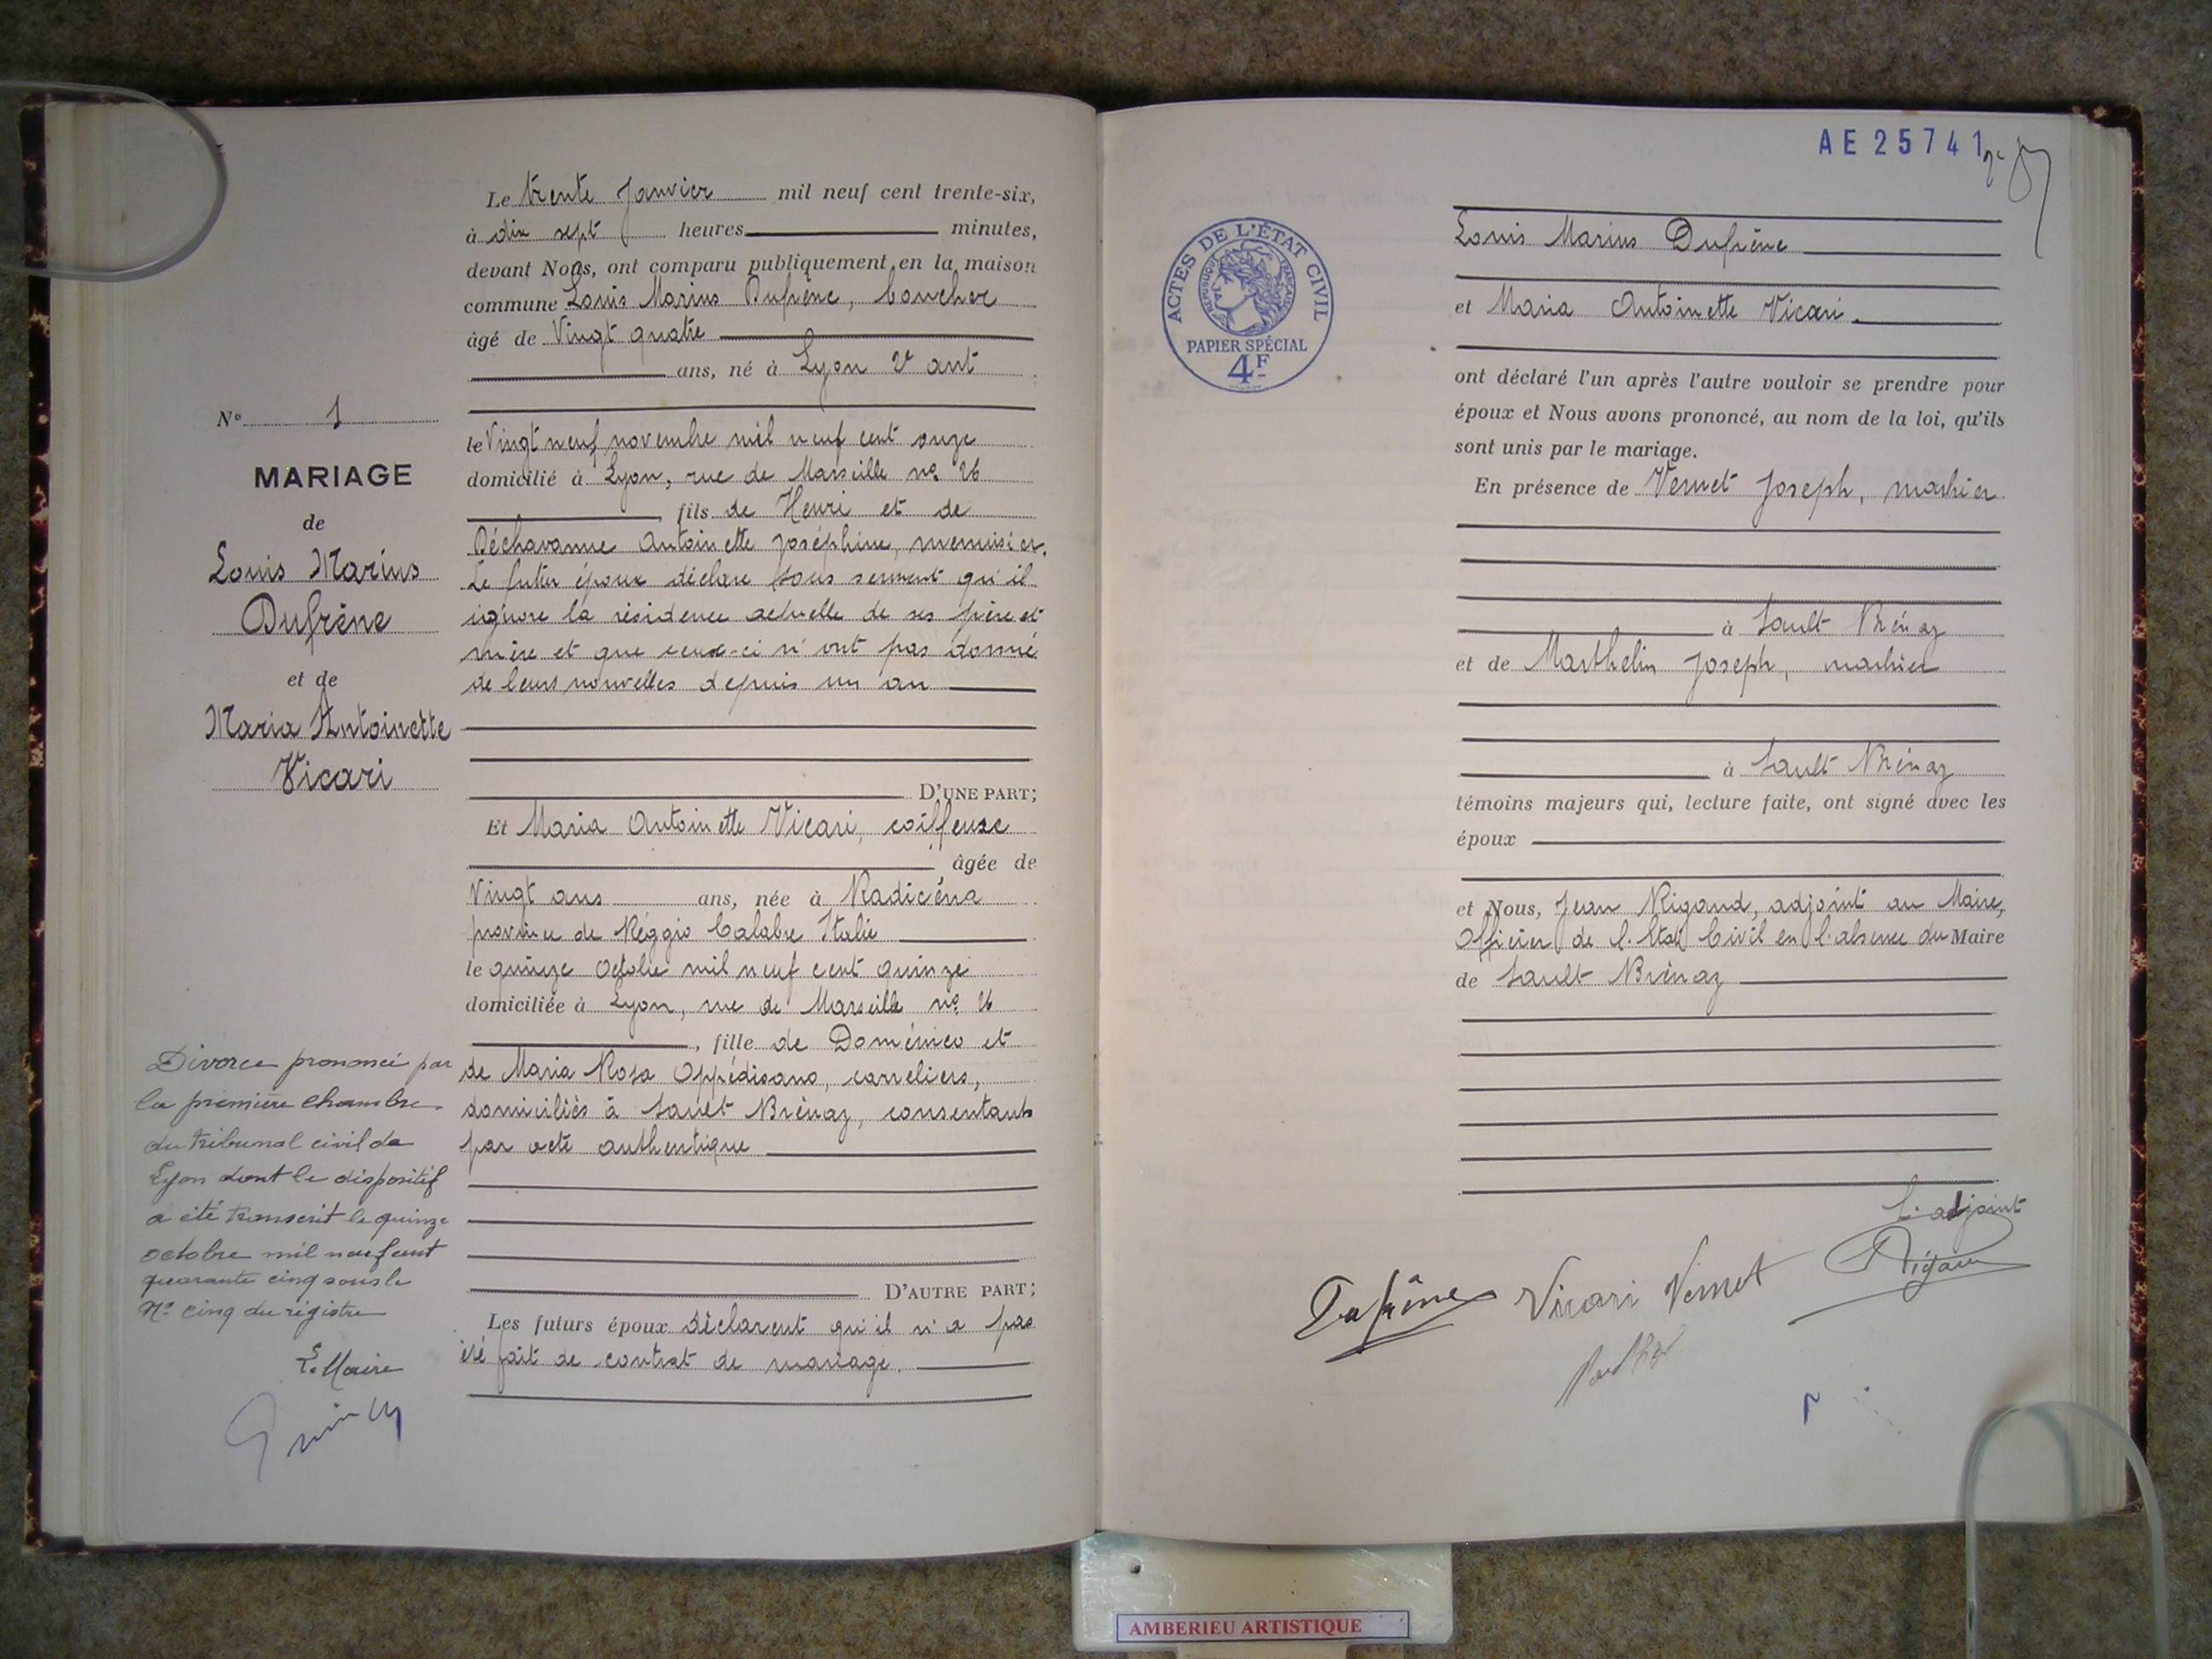 Le trente Janvier mil neuf cent trente-six,
à dix sept heures minutes,
devant Nous, ont comparu publiquement en la maison
commune Louis Marius Dufrène, boucher
âgé de Vingt quatre
ans, né à Lyon 2e arrt
le Vingt neuf novembre mil neuf cent onze
domicilié à Lyon, rue de Marseille no. 26
, fils de Henri et de
Déchavanne Antoinette Joséphine, menuisier.
Le futur époux déclare sous serment qu'il
ignore la résidence actuelle de ses père et
mère et que ceux-ci n'ont pas donné
de leurs nouvelles depuis un an
D'UNE PART;
Et Maria Antoinette Vicari, coiffeuse
âgée de
Vingt ans ans, née à Radicéna
province de Réggio Calabre Italie
le quinze Octobre mil neuf cent quinze
domiciliée à Lyon, rue de Marseille no. 26
, fille de Doménico et
de Maria Rosa Oppédisano, carreliers,
domiciliés à Sault Brénaz, consentants
par acte authentique
D'AUTRE PART;
Les futurs époux déclarent qu'il n'a pas
été fait de contrat de mariage.
No 1
MARIAGE
de
Louis Marius
Dufrène
et de
Maria Antoinette
Vicari
Divorce prononcé par
la première chambre
du tribunal civil de
Lyon dont le dispositif
a été transcrit le quinze
octobre mil neuf cent
quarante cinq sous le
No cinq du régistre
Le Maire
AE 25741
ACTES DE L'ÉTAT CIVIL
RÉPUBLIQUE FRANÇAISE
PAPIER SPÉCIAL
4F
Louis Marius Dufrène
et Maria Antoinette Vicari.
ont déclaré l'un après l'autre vouloir se prendre pour
époux et Nous avons prononcé, au nom de la loi, qu'ils
sont unis par le mariage.
En présence de Vernet Joseph,
à Sault Brénaz
et de Marthelin Joseph,
à Sault Brénaz
témoins majeurs qui, lecture faite, ont signé avec les
époux
et Nous, Jean Rigaud, adjoint au Maire,
Officier de l'Etat Civil en l'absence du Maire
de Sault Brénaz
L'adjoint
Dufrène Vicari Vernet Rigaud
AMBERIEU ARTISTIQUE